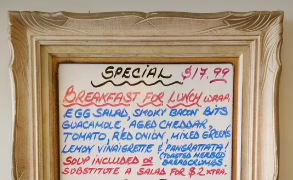 SPECIAL $17.99
BREAKFAST FOR LUNCH WRAP.
EGG SALAD, SMOKY BACON BITS
GUACAMOLE, AGED CHEDDAR,
TOMATO, RED ONION, MIXED GREENS
LEMON VINAIGRETTE & PANGRATTATA!
(TOASTED HERBED
SOUP INCLUDED OR BREADCRUMBS.
SUBSTITUTE A SALAD FOR $2 XTRA.